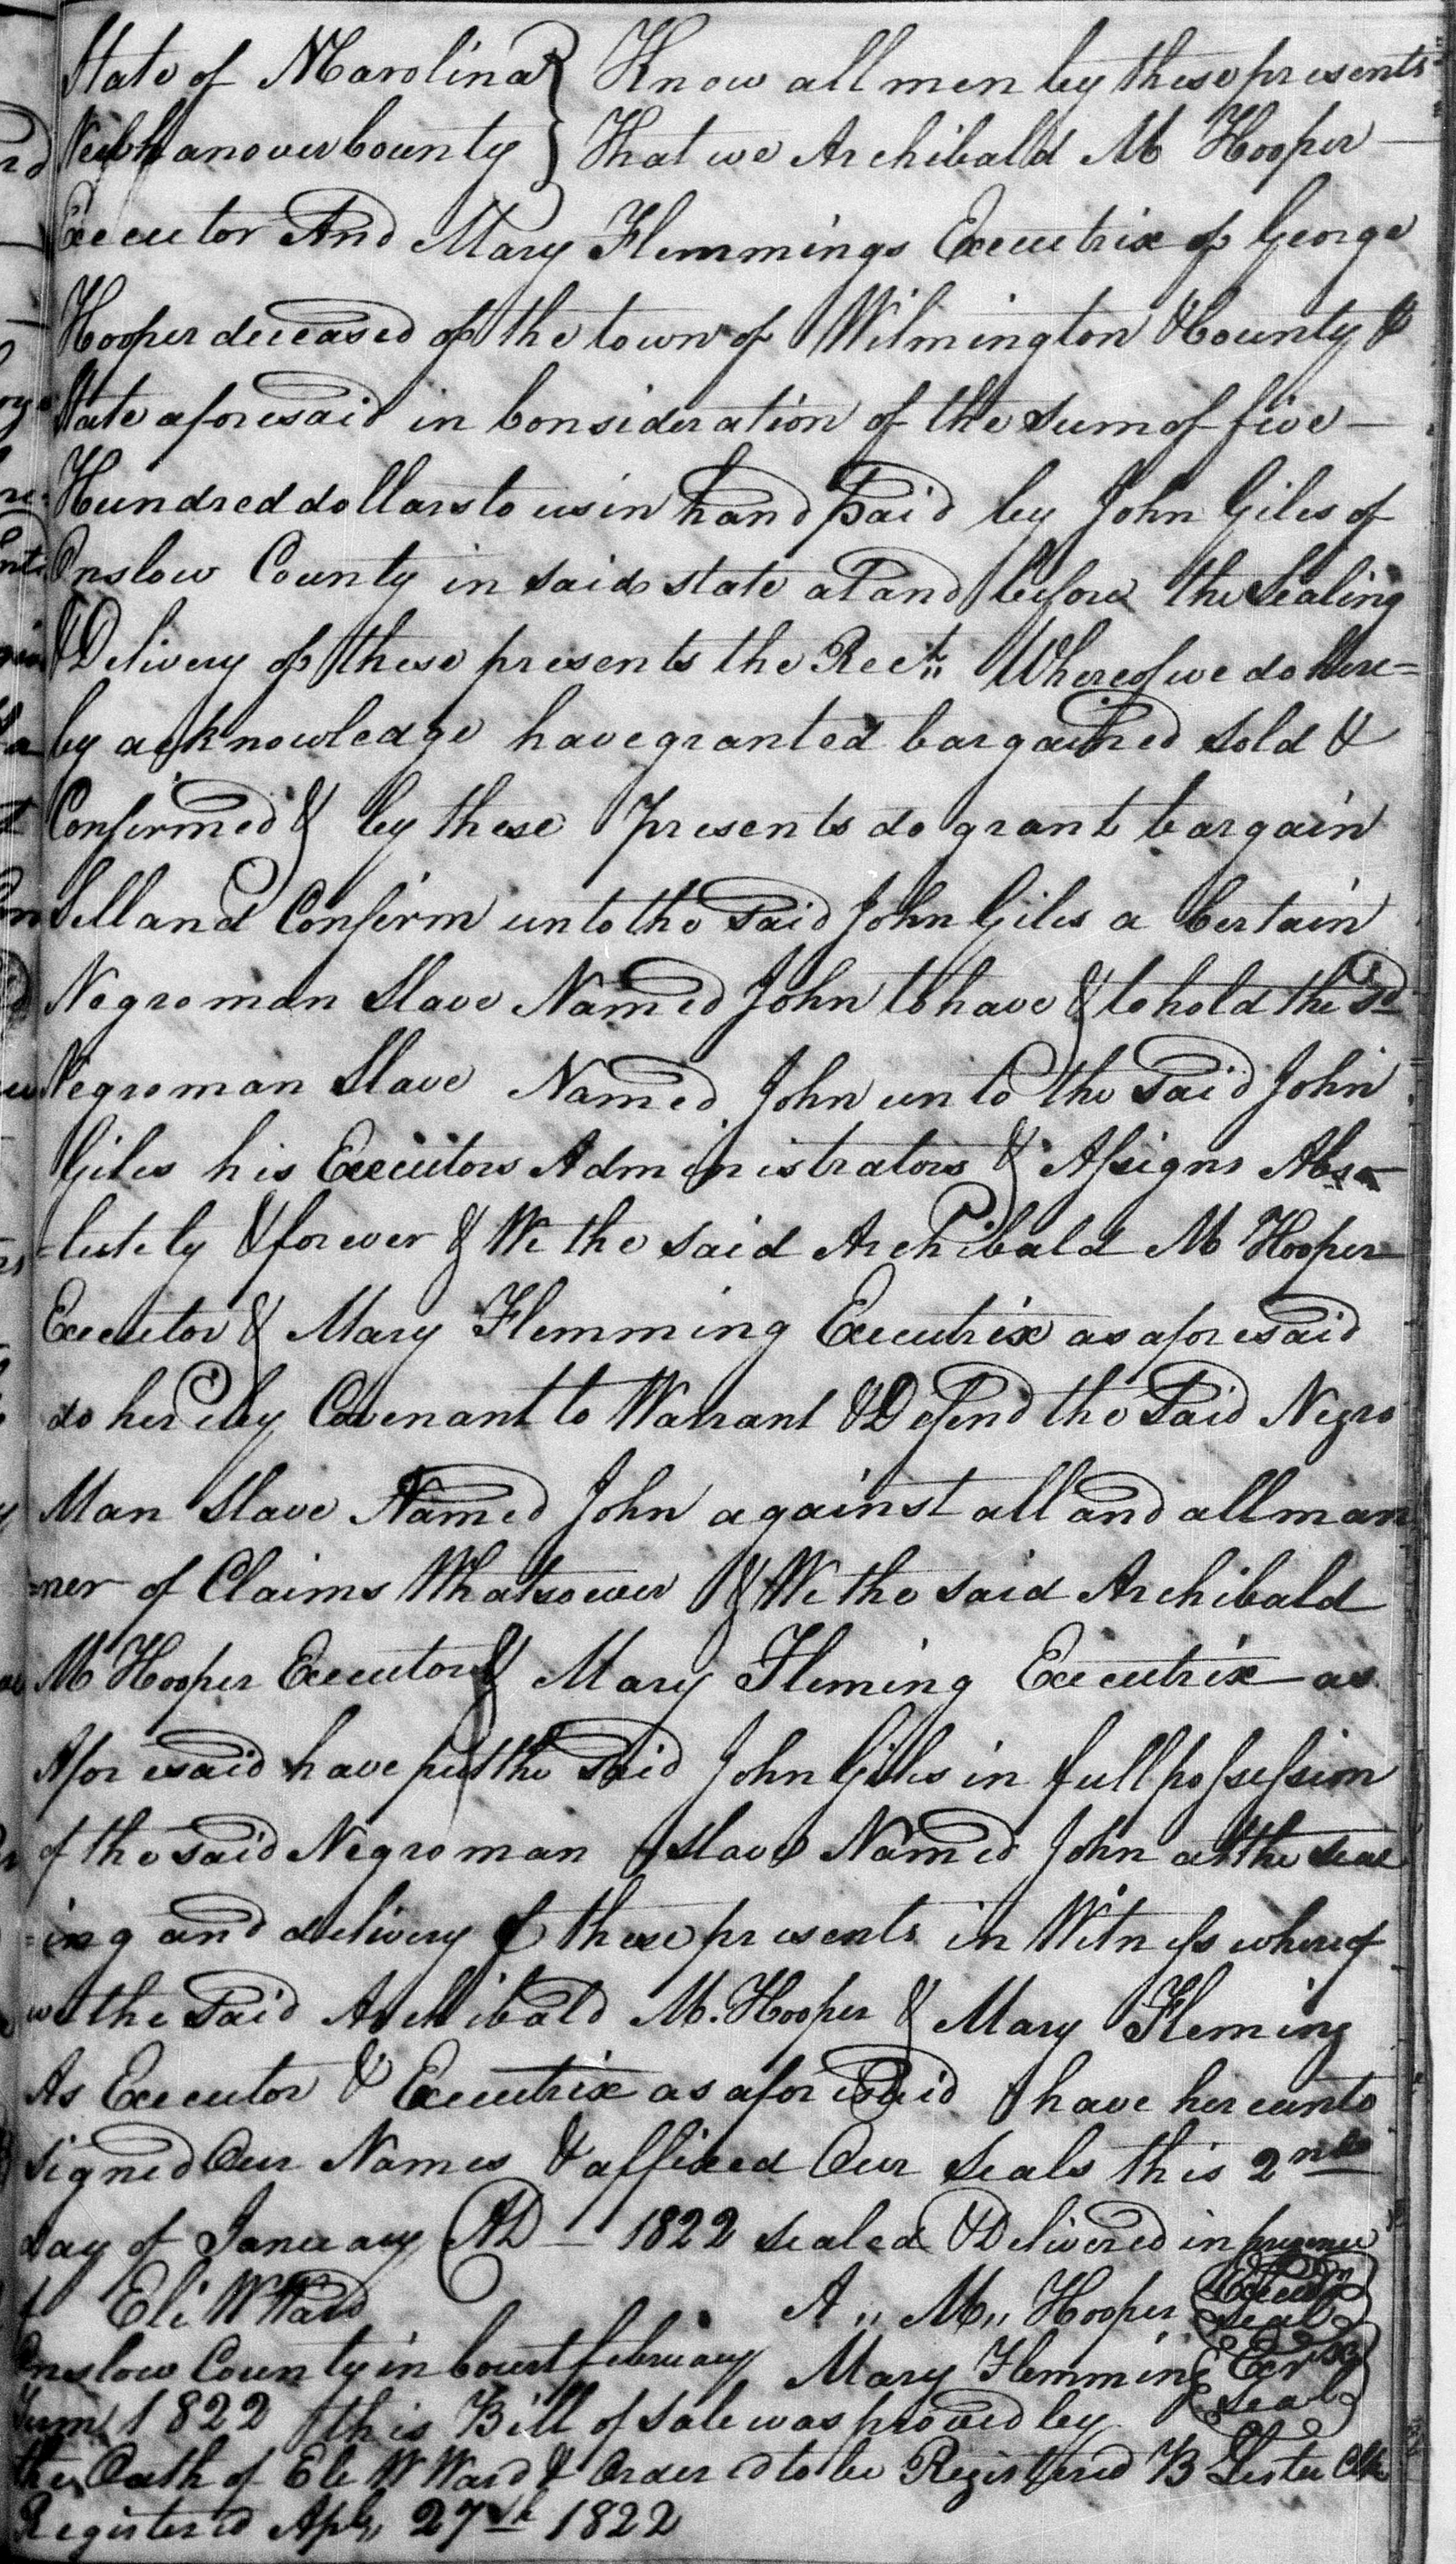 State of NCarolina } Know all men by these presents
New hanover County } That we Archibald M Hooper
Executor And Mary Flemmings Executrix of George
Hooper deceased of the town of Wilmington & County &
State aforesaid in Consideration of the Sum of five
Hundred dollars to us in hand paid by John Giles of
Onslow County in said state at and before the Sealing
& Delivery of these presents the Rect. Whereof we do here=
by acknowledge have granted bargained Sold &
Confirmed & by these presents do grant bargain
Sell and Confirm unto the Said John Giles a Certain
Negro man Slave Named John to have & to hold the Sd
Negro man Slave Named John unto the Said John
Giles his Executors Administrators & Assigns Abso
=lutely & forever & We the said Archibald M Hooper
Executor & Mary Flemming Executrix as aforesaid
do hereby Covenant to Warrant & Defend the Said Negro
Man Slave Named John against all and all man
=ner of Claims Whatsoever & We the said Archibald
M Hooper Executor & Mary Fleming Executrix as
Aforesaid have put the Said John Giles in full possession
of the said Negro man slave Named John at the seal
=ing and delivery of these presents in Witness whereof
we the Said Archibald M. Hooper & Mary Fleming
As Executor & Executrix as aforesaid have hereunto
Signed Our Names & affixed Our Seals this 2nd
day of January AD 1822 sealed & Delivered in presence
of Eli W Ward A,, M,, Hooper Executor Seal
Onslow County in Court february Mary Flemming Exrx Seal
Term 1822 this Bill of Sale was proved by
the Oath of Eli W Ward & Ordered to be Registered B Lester Clk
Registered Apl,, 27th 1822